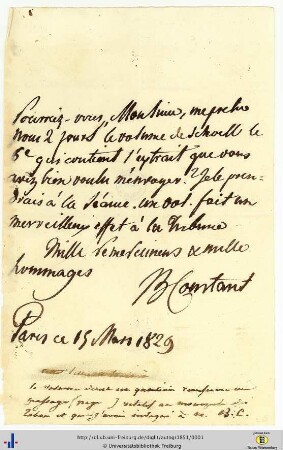 Pourriez-vous, Monsieur, me preter
pour 2 jours le volume de Schoell le
6e qui contient l'extrait que vous
avez bien voulu m'envoyer. Je le pren-
drais à la Séance. Un vol. fait un
merveilleux effet à la Tribune
Mille remerciemens & mille
hommages
B Constant
Paris ce 15 Mars 1829
le volume
passage (page ) relatif au
et que j'avais B. C.
http://dl.ub.uni-freiburg.de/diglit/autogr1851/0001
© Universitätsbibliothek Freiburg